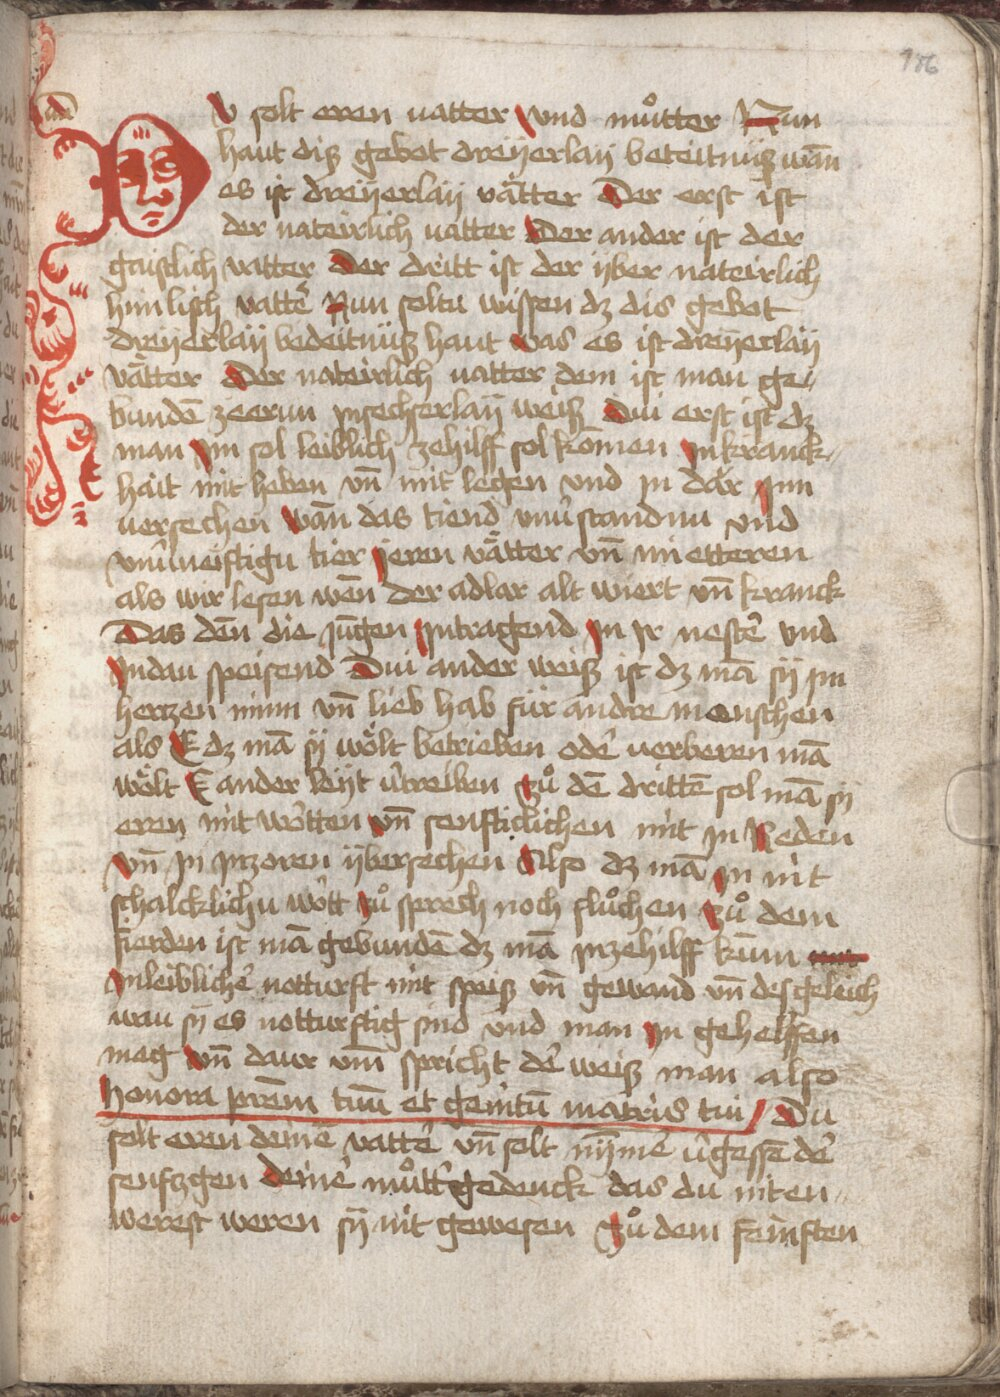 186
DV solt eren vatter vnd muͦtter Nun
haut diß gebot dreÿerlaÿ beteitnuß wān
es ist dreÿerlaÿ vätter Der erst ist
der nateirlich vatter Der ander ist der
gaistlich vatter Der dritt ist der ÿber nateirlich
himlisch vatter Nun soltu wissen dz dis gebot
dreÿerlaÿ bedeitnuß haut was es ist dreÿerlaÿ
vätter Der nateirlich vatter dem ist man ge
bunden zeerun jn sechserlaÿ weiß Dui erst ist dz
man im sol leiblich zehilff sol komen in kranck
hait mit heben vn̄ mit legen vnd in dar Inn
versechen wān das tiend vnuerstandnu vnd
vnuerneiftigu tier jeren vätter vn̄ mietteren
als wir lesen wen̄ der adlar alt wiert vn̄ kranck
Das den̄ die jūgen jntragend in jr neste vnd
jn dau speisend Dui ander weiß ist dz mā sÿ jm
hertzen minn vn̄ lieb hab für andre menschen
als E dz mā sÿ wölt betrieben ode verberen mā
wölt E ander leÿt vertreiben zuͦ dē dritte sol mā sÿ
eren mit wortten vn̄ senfticlichen mit in Reden
vn̄ in jn zoren ÿbersechen Also dz mā in nit
schalcklichu wort zuͦ sprech noch fluͦchen zuͦ dem
fierden ist mā gebunden dz mā jn zehilff kum
jn leiblicher notturft mit speiß vn̄ gewand vn̄ desgeleich
wau sÿ es notturftig sind vnd man in gehelffen
mag vn̄ daur vm spricht der weiß man also
Honora prēm tuū et gemitū matris tui Du
solt eren deine vatte vn̄ solt nÿme vergessē de
senfzgen deiner muͦtter gedenck das du nit en
werest weren sÿ nit gewesen Zuͦ dem feinften